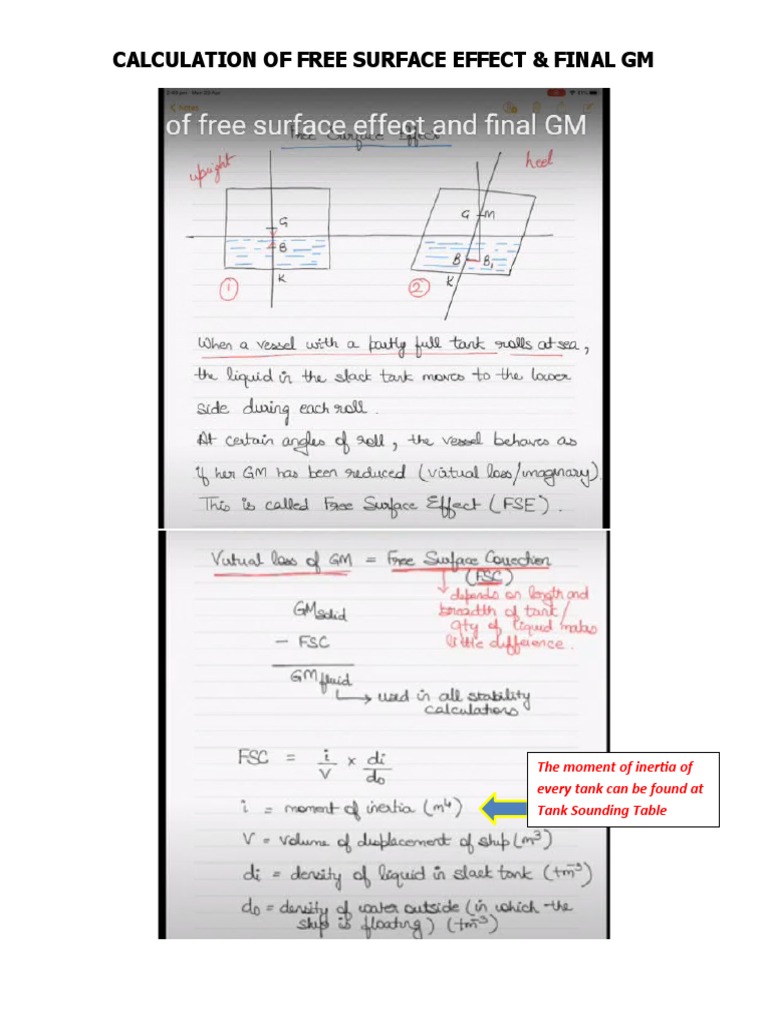 CALCULATION OF FREE SURFACE EFFECT & FINAL GM
Notes
of free surface effect and final GM
Free Surface Effect
upright
heel
G
B
K
1
G M
B B1
K
2
When a vessel with a partly full tank rolls at sea,
the liquid in the slack tank moves to the lower
side during each roll.
At certain angles of roll, the vessel behaves as
if her GM has been reduced (virtual loss/imaginary).
This is called Free Surface Effect (FSE).
Virtual loss of GM = Free Surface Correction
(FSC)
depends on length and
breadth of tank/
qty of liquid makes
little difference.
GM solid
- FSC
GM fluid
used in all stability
calculations
FSC = i/V × di/do
i = moment of inertia (m⁴)
V = volume of displacement of ship (m³)
di = density of liquid in slack tank (tm⁻³)
do = density of water outside (in which the
ship is floating) (tm⁻³)
The moment of inertia of
every tank can be found at
Tank Sounding Table